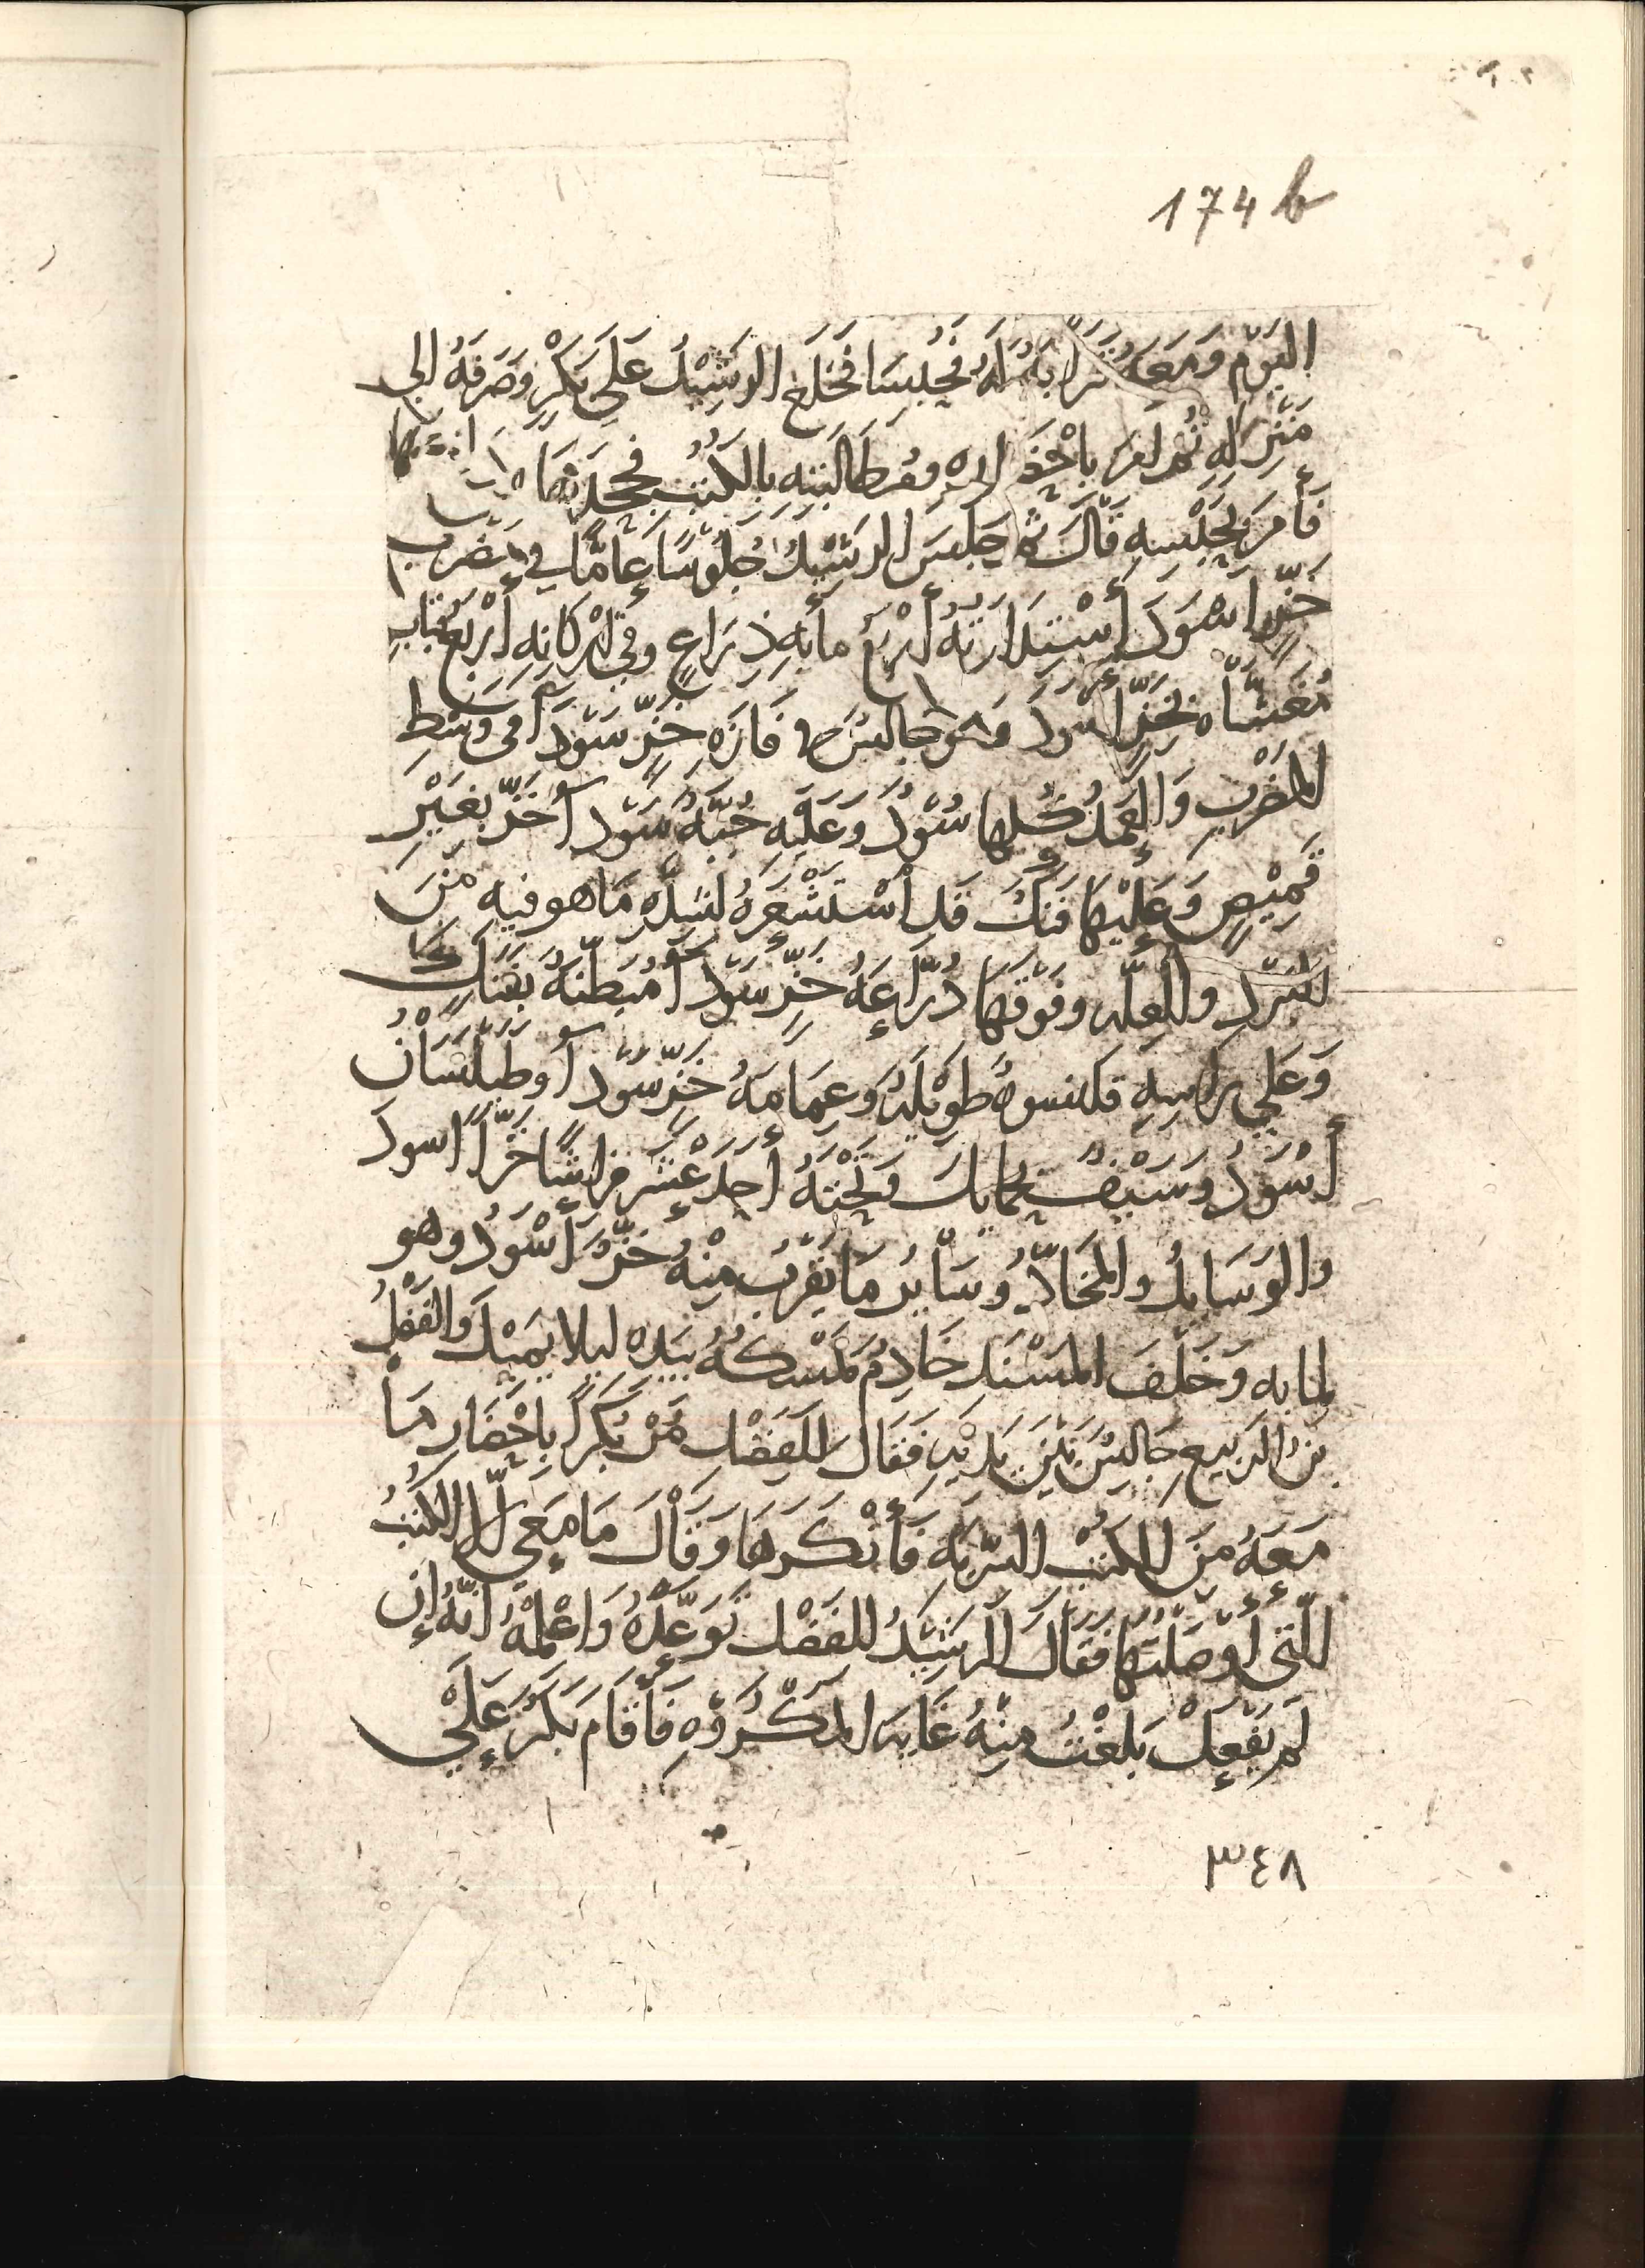 174 b
اليَوْم وَمَعَهُ قَرَابَةٌ لَهُ فَحُبِسَا فَخَلَعَ الرَشِيْدُ عَلَى بَكْرٍ وَصَرَفَهُ الى
مَنْزِلِهِ ثُم امرَ باحْضَارِهِ ومُطَالَبَتِهِ بِالكُتُبِ فجَحَدَهَا
فَأمَرَ بِحَبْسِهِ قَالَ ثُمَّ جَلَسَ الرَشِيْدُ جُلُوسًا عَامًّا في مَضْرَبِ
خَزٍّ اسْوَدَ أسْتِدَارَتُهُ أرْبَعُ مأيهِ ذِرَاعٍ وفي أرْكَانِهِ أرْبَعُ قِبَابٍ
مُغَشَّاه بخَزٍّ أسْودَ وَهُوَ جَالِسٌ في فَازَةِ خَزٍّ سَوْدَآ في وَسَطِ
المَضْرَبِ وَالعُمُدُ كُلُها سُوْدٌ وَعَلَيْهِ جُبَّةٌ سَوْدآ خَزٌّ بِغَيْرِ
قَمِيْصٍ وَعَلَيْهَا فَنَكٌ قَد اسْتَشْعَرَهُ لشِدَّهِ مَا هو فيهِ مِنَ
البَرْدِ والعِلّه وَفَوْقَهَا دُرَّاعَةُ خَزٍّ سَوْدآ مُبَطَّنَةٌ بفَنَكٍ
وَعَلَى رَاسِهِ قلنسوهٌ طَوِيْلَةٌ وَعِمَامَةُ خَزٍّ سَوْدآ وطَيْلَسَانٌ
أسْوَدُ وَسَيْفٌ بحَمايلَ وَتَحْتَهُ أحَدَ عَشَرَ فِرَاشًا خَزًّا اسودَ
والوَسَايدُ والمَخَادُّ وَسَاْيرُ مَا يَقْرُبُ مِنْهُ خَزٌّ أَسْوَدُ وهو
لمابه وَخَلْفَ المَسْنَدِ خَادِمٌ يَمْسكُهُ بيَدِه ليلا يَمِيْدَ وَالفَضْلُ
بنُ الرَبِيعِ جَالِسٌ بَيْنَ يَدَيْهِ فَقَالَ لِلفَضْلِ مُرْ بَكْرًا بِاحْضَارِ مَا
مَعَهُ مِنَ الكُتُبِ السِّرِيّه فَأَنْكَرَهَا وَقَالَ مَا مَعِي إلّا الكُتُبُ
الَّتِي أَوْصَلْتُهَا فَقَالَ الرَشِيْدُ للفَضْلِ تَوَعَّدْهُ وَاعْلِمْهُ أَنَّهُ إن
لَم يَفْعَلْ بَلَغْتُ مِنْهُ غَايَه المَكْرُوْهِ فَأَقَامَ بَكْرٌ عَلَى
٣٤٨